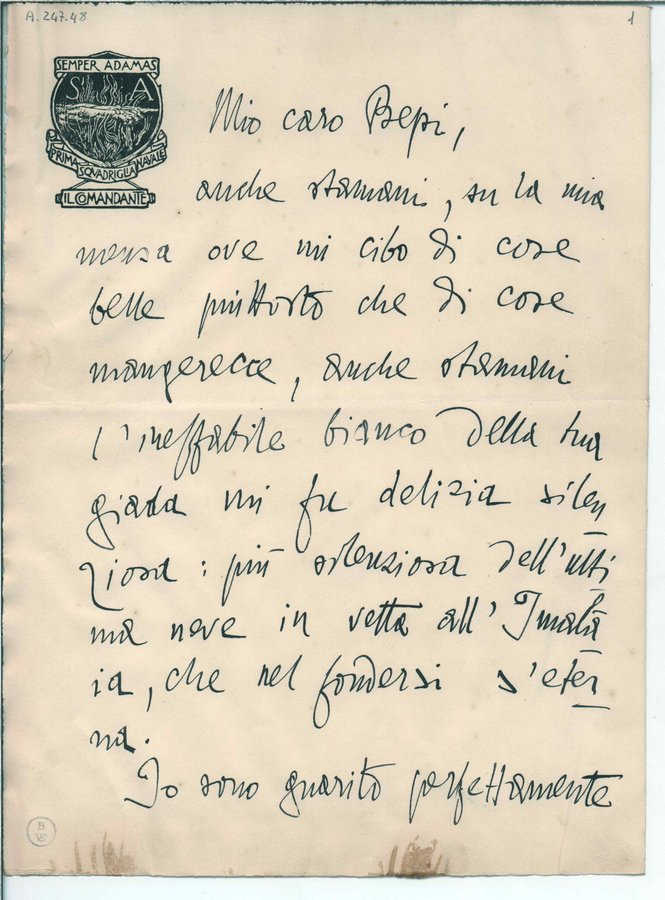 A. 247.48
1
SEMPER ADAMAS
S A
PRIMA SQVADRIGLIA NAVALE
IL COMANDANTE
Mio caro Bepi,
anche stamani, su la mia
mensa ove mi cibo di cose
belle piuttosto che di cose
mangerecce, anche stamani
l'ineffabile bianco della tua
giada mi fu delizia silen
ziosa: più silenziosa dell'ulti
ma neve in vetta all'Imala
ia, che nel fondersi s'eter
na.
Io sono guarito perfettamente
B